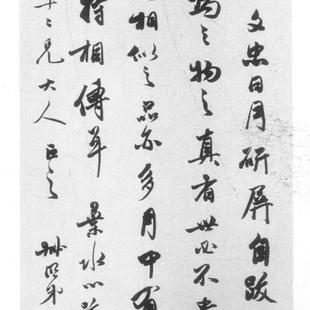 文忠日月研屏自跋
之物之真者世必不
相似之品亦多月中有
特相傳耳 葉水心跋
十二兄大人 正之 弟